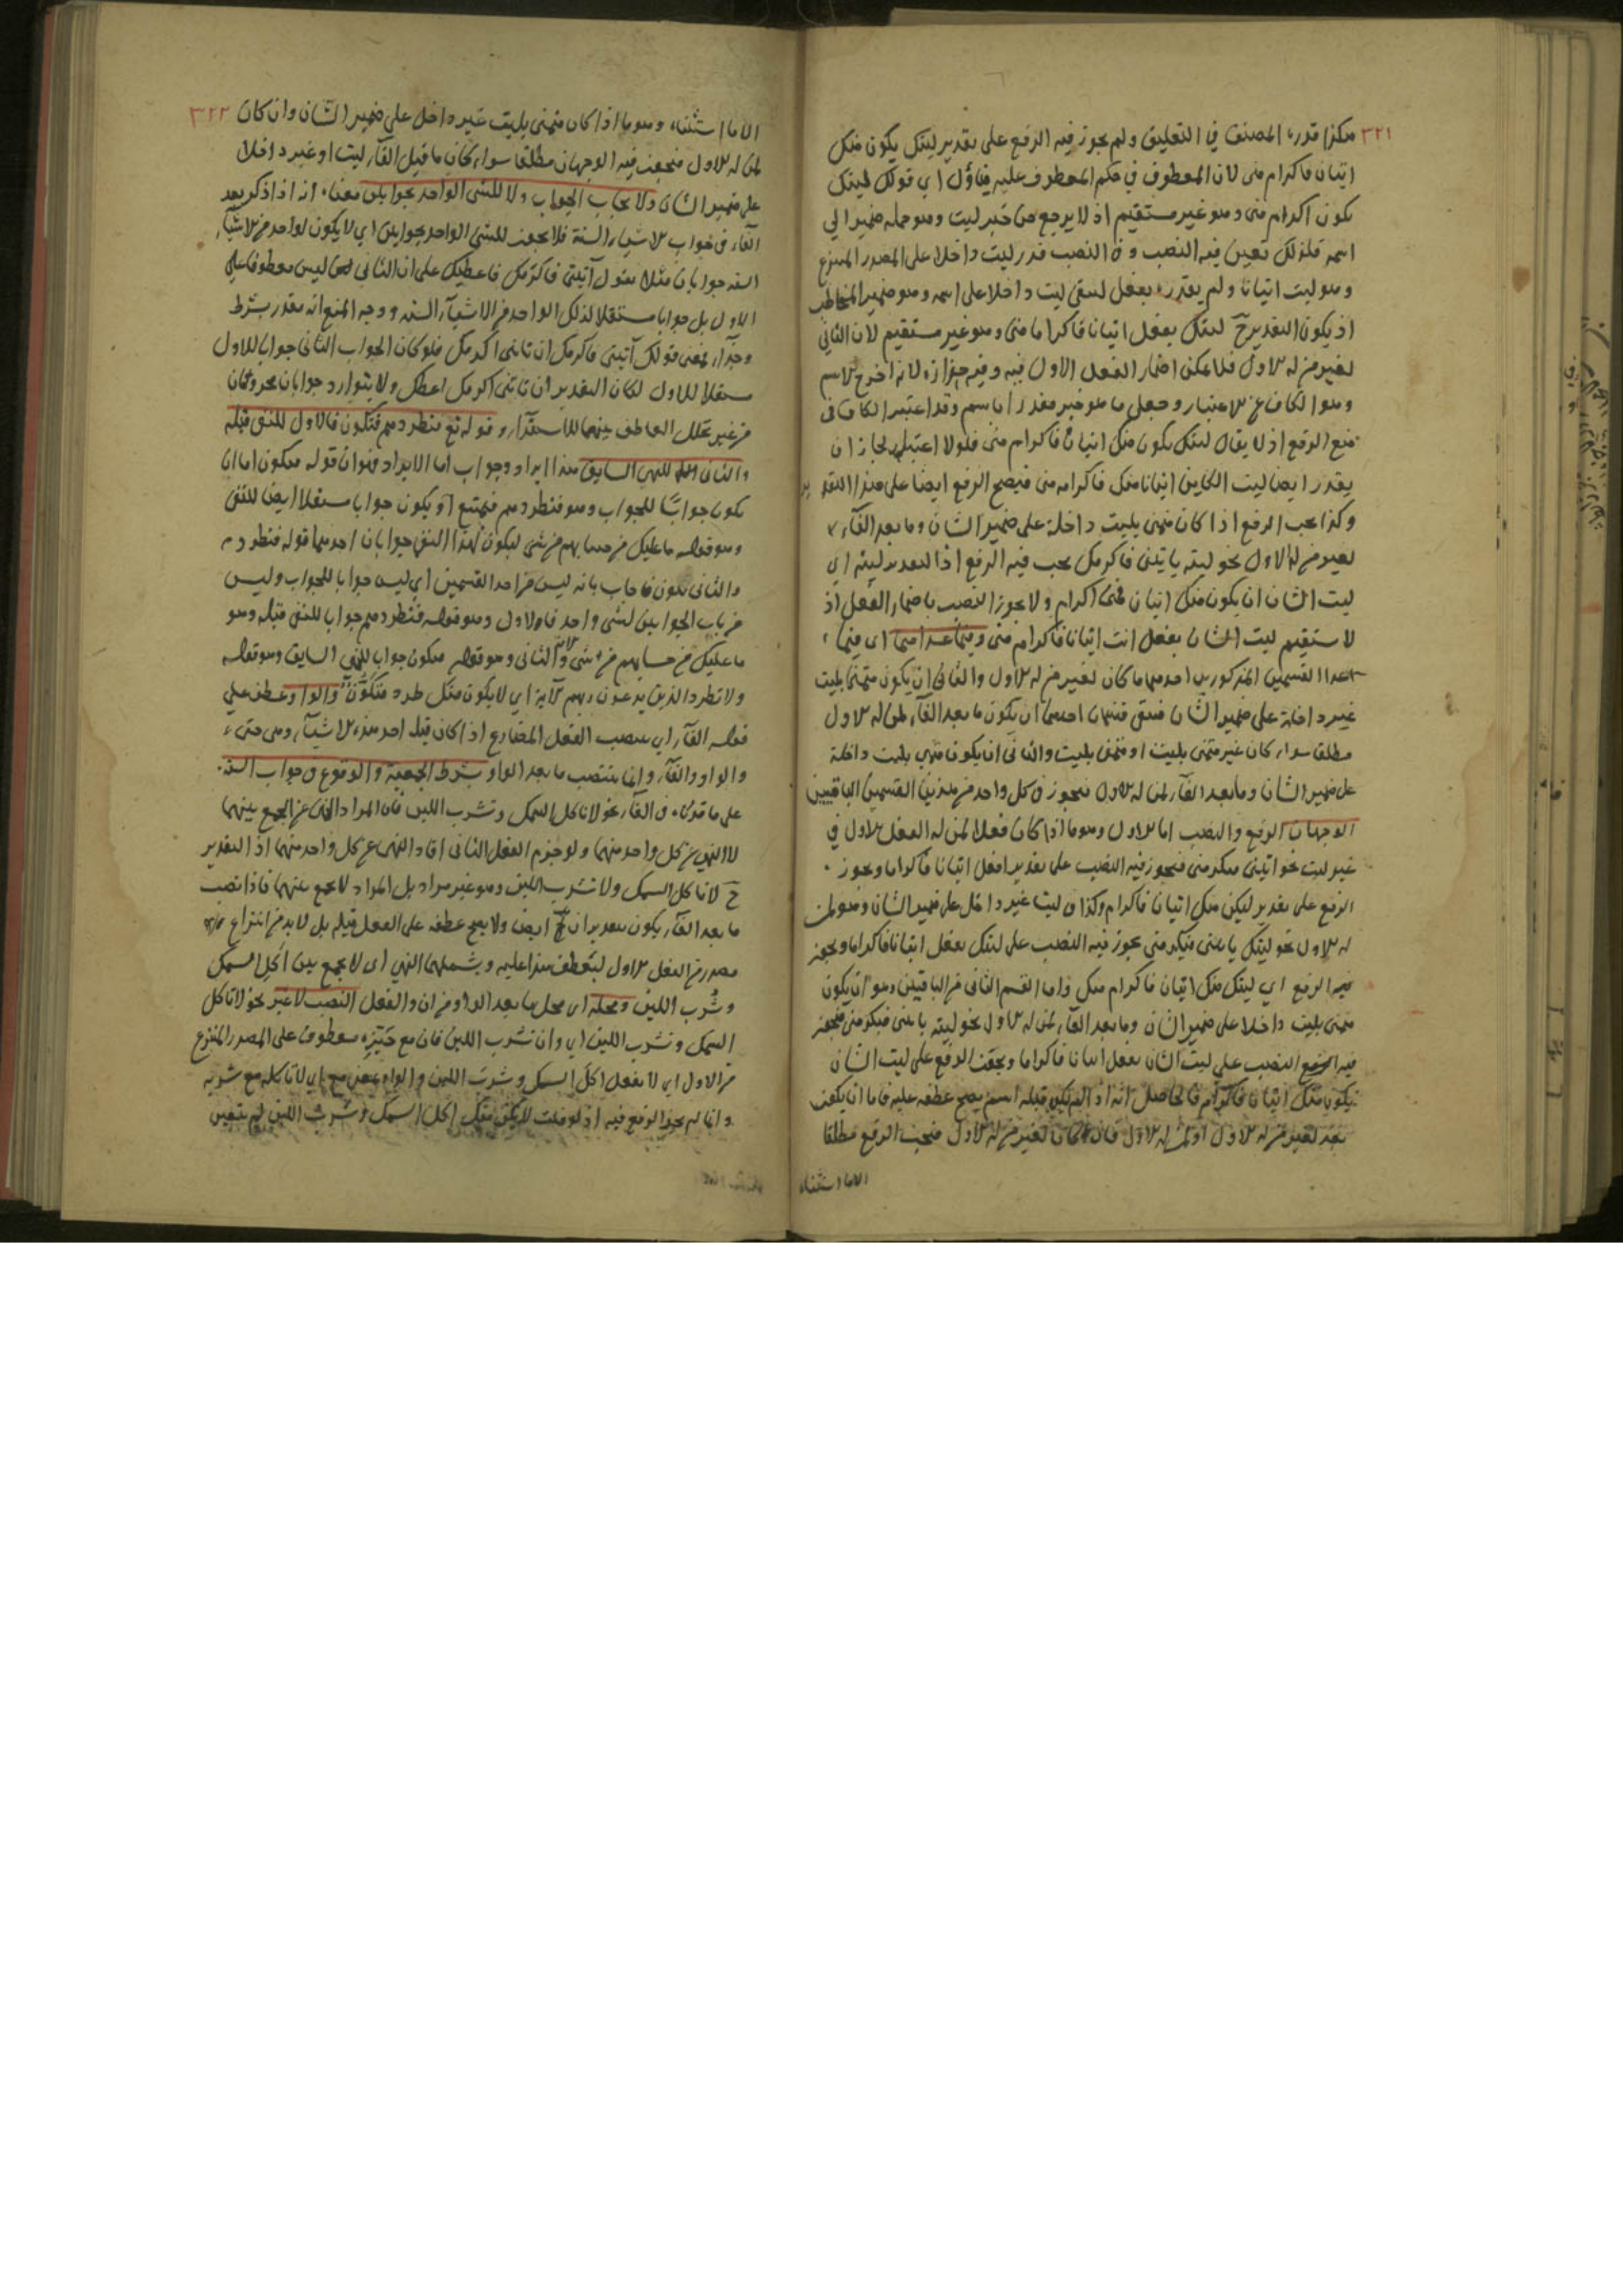 ٣٢١
هكذا قدره المصنف في التعليق ولم يجوز فيه الرفع على تقدير ليتك يكون منك
اتيان فاكرام منى لان المعطوف في حكم المعطوف عليه فيأول اي قولك ليتك
يكون اكرام منى وهو غير مستقيم اذ لا يرجع من خبر ليت وهو جملة ضمير الى
اسمه فلذلك تعين فيه النصب وفي النصب قدر ليت داخلا على المصدر المنتزع
وهو ليت اتيانا ولم يقدره بفعل لتبقى ليت داخلا على اسمه وهو ضمير المخاطب
اذ يكون التقدير ح ليتك بفعل اتيانا فاكراما منى وهو غير مستقيم لان الثاني
لغير من له الاول فلا يمكن اضمار الفعل الاول فيه وفيه حزازة لانه اخرج الاسم
وهو الكاف عن الاعتبار وجعل ما هو خبر مقدرا باسم وقد اعتبر الكاف في
منع الرفع اذ لا يقال ليتك يكون منك اتيان فاكرام منى فلولا اعتبار لجاز ان
يقدر ايضا ليت الكاين اتيانا منك فاكرام منى فيصح الرفع ايضا على هذا التقدير
وكذا يجب الرفع اذا كان متمنى بليت داخلة على ضمير الشان وما بعد الفاء
لغير من له الاول نحو ليته ياتينى فاكرمك يجب فيه الرفع اذا التقدير ليته اي
ليت الشان ان يكون منك اتيان فمنى اكرام ولا يجوز النصب باضمار الفعل اذ
لا يستقيم ليت الشان بفعل انت اتيانا فاكرام منى وفيما عداهما اى فيما
عدا القسمين المذكورين احدهما ما كان لغير من له الاول والثاني ان يكون متمنى بليت
غير داخلة على ضمير الشان فبقى قسمان احدهما ان يكون ما بعد الفاء لمن له الاول
مطلقا سواء كان غير متمنى بليت او متمنى بليت والثاني ان يكون متمنى بليت داخلة
على ضمير الشان وما بعد الفاء لمن له الاول فيجوز في كل واحد من هذين القسمين الباقيين
الوجهان الرفع والنصب اما الاول وهو ما اذا كان فعلا لمن له الفعل الاول في
غير ليت نحو اتينى فتكرمنى فيجوز فيه النصب على تقدير افعل اتيانا فاكراما ويجوز
الرفع على تقدير ليكن منك اتيان فاكرام وكذا في ليت غير داخل على ضمير الشان وهو لمن
له الاول نحو ليتك ياتينى فيكرمنى يجوز فيه النصب على ليتك بفعل اتيانا فاكراما ويجوز
فيه الرفع اي ليتك منك اتيان فاكرام منك واما القسم الثاني من الباقيين وهو ان يكون
متمنى بليت داخلا على ضمير الشان وما بعد الفاء لمن له الاول نحو ليته ياتينى فيكرمنى فيجوز
فيه النصب على ليت الشان بفعل اتيانا فاكراما ويجوز الرفع على ليت الشان
يكون منك اتيانا فاكرام فالحاصل انه اذا لم يكن قبله اسم يصح عطفه عليه فاما ان يكون
بعد لغير من له الاول او لمن له الاول فان كان لغير من له الاول فيجب الرفع مطلقا
الا ما استثناه
٣٢٢
الا ما استثناه وهو ما اذا كان متمنى بليت غير داخل على ضمير الشان وان كان
لمن له الاول فيجوز فيه الوجهان مطلقا سواء كان ما قبل الفاء ليت او غير داخلا
على ضمير الشان ولا يجاب الجواب ولا للشى الواحد بجوابين معناه انه اذا ذكر بعد
الفاء في جواب الاشياء الستة فلا يجوز للشى الواحد بجوابين اي لا يكون لواحد من الاشياء
الستة جوابان مثلا يقول آتيتنى فاكرمك فاعطيك على ان الثاني ليس معطوفا على
الاول بل جوابا مستقلا لذلك الواحد من الاشياء الستة ووجه المنع انه يقدر بشرط
وجزاء بمعنى قولك آتينى فاكرمك ان تاتنى اكرمك فلو كان الجواب الثاني جوابا للاول
مستقلا للاول لكان التقدير ان تاتنى اكرمك اعطك ولا يتوارد جوابان مجزومان
من غير تخلل العاطف بينهما للاستقراء وقوله تع فتطردهم فتكون فالاول للنفى قبله
والثاني للنهى السابق هذا ايراد وجواب اما الايراد فهو ان قوله فتكون اما ان
يكون جوابا للجواب وهو فتطردهم فيمتنع او يكون جوابا مستقلا ايضا للنفى
وهو قوله ما عليك من حسابهم من شى ليكون لهذا النفى جوابان احدهما قوله فتطردهم
والثاني فتكون فاجاب بانه ليس من احد القسمين اي ليس جوابا للجواب وليس
من باب الجوابين لشى واحد فالاول وهو قوله فتطردهم جواب للنفى قبله وهو
ما عليك من حسابهم من شى والثاني وهو قوله فتكون جواب للنهى السابق وهو قوله
ولا تطرد الذين يدعون ربهم الاية اي لا يكون منك طرد فتكون والواو عطف على
قوله الفاء اي ينصب الفعل المضارع اذا كان قبله احد هذه الاشياء وهى حتى
والواو والفاء وانما ينتصب ما بعد الواو بشرط الجمعية والوقوع في جواب الستة
على ما قدرناه في الفاء نحو لا تاكل السمك وتشرب اللبن فان المراد النهى عن الجمع بينهما
لا النهى عن كل واحد منهما ولو جزم الفعل الثاني افاد النهى عن كل واحد منهما اذ التقدير
ح لا تاكل السمك ولا تشرب اللبن وهو غير مراد بل المراد لا تجمع بينهما فاذا نصب
ما بعد الفاء يكون بتقدير ان ايضا ولا يصح عطفه على الفعل قبله بل لا بد من انتزاع
مصدر من الفعل الاول ليعطف هذا عليه ويشملهما النهى اى لا تجمع بين اكل السمك
وشرب اللبن ومحله اى محل ما بعد الواو من ان والفعل النصب لا غير نحو لا تاكل
السمك وتشرب اللبن اي وان تشرب اللبن فان مع حيزه معطوف على المصدر المنتزع
من الاول اي لا تفعل اكل السمك وشرب اللبن والواو بمعنى مع اي لا تاكله مع شربه
وانما لم يجز الرفع فيه اذ لو قلت لا يكن منك اكل السمك وشرب اللبن لم يتعين